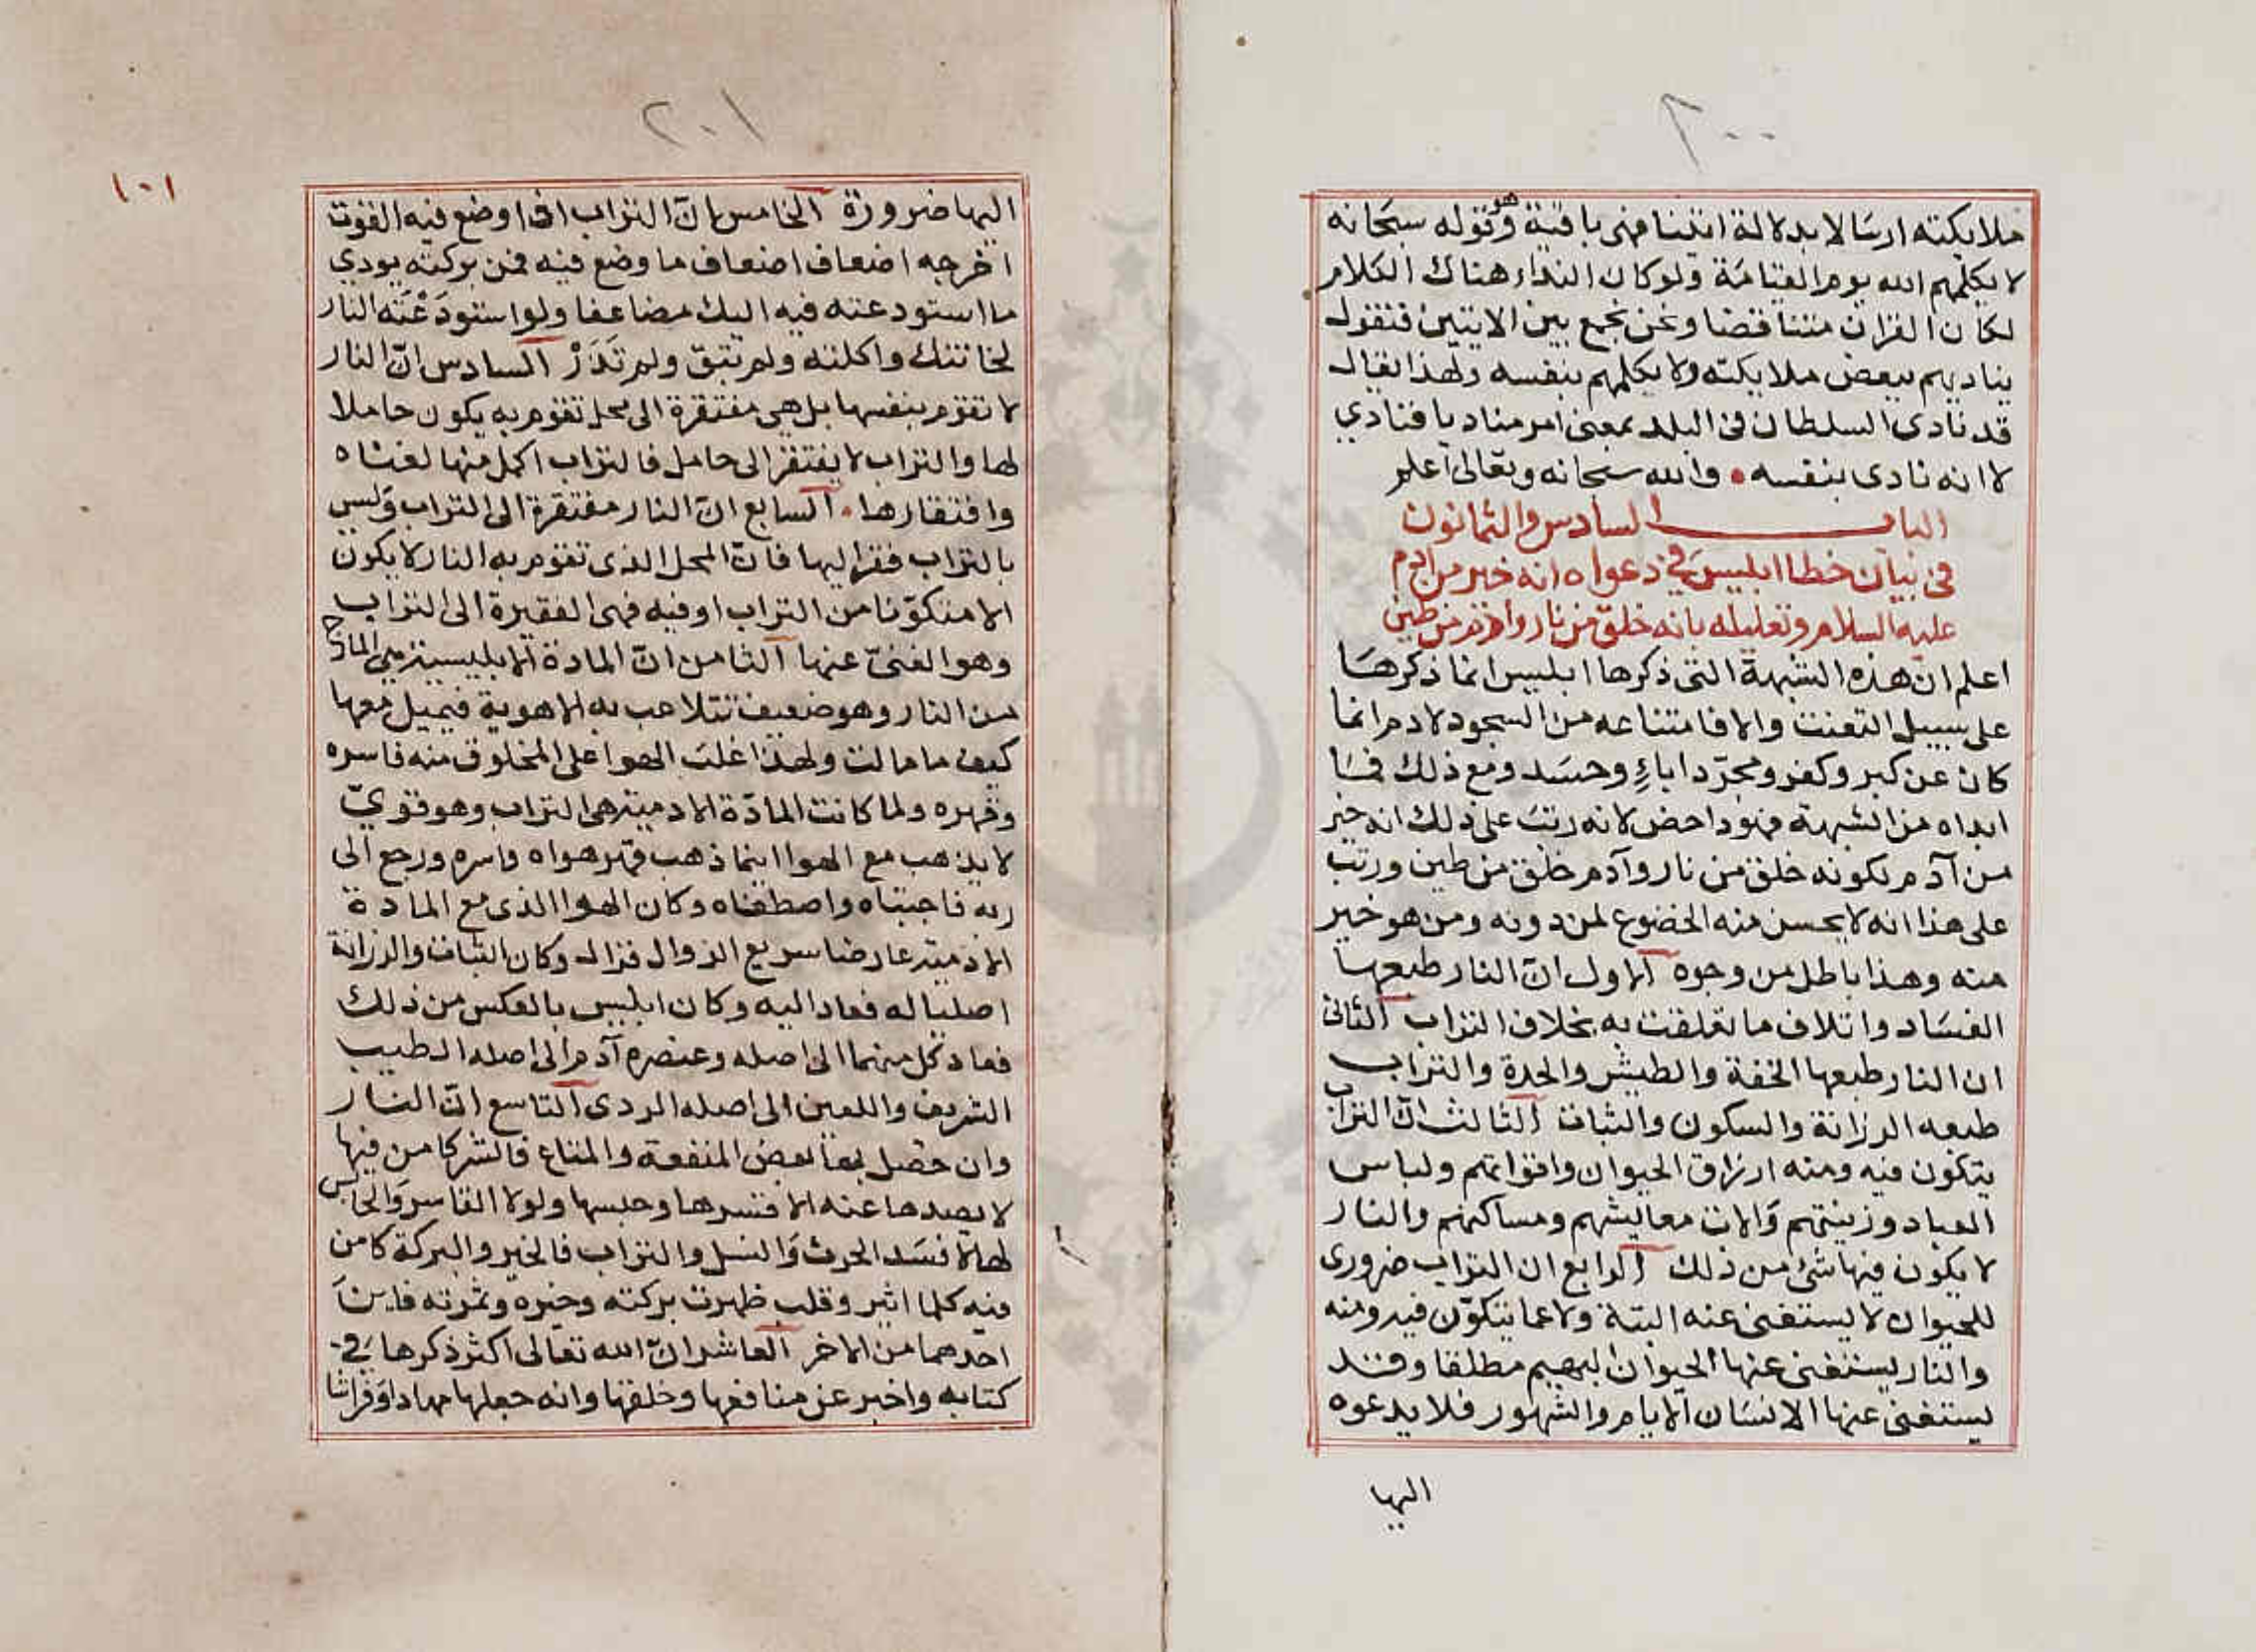 ٢٠٠
ملايكته ارسالا بدلالة اتتنا فهى باقية وقوله سبحانه
لا يكلمهم الله يوم القيامة ولو كان النداء هناك الكلام
لكان القران متناقضا ونحن نجمع بين الايتين فنقول
يناديهم ببعض ملايكته ولا يكلمهم بنفسه ولهذا يقال
قد نادى السلطان فى البلد بمعنى امر مناديا فنادي
لا انه نادى بنفسه • والله سبحانه وتعالى اعلم
الباب السادس والثمانون
فى بيان خطا ابليس في دعواه انه خير من ادم
عليه السلام وتعليله بانه خلق من نار وادم من طين
اعلم ان هذه الشبهة التى ذكرها ابليس انما ذكرها
على سبيل التعنت والا فامتناعه من السجود لادم انما
كان عن كبر وكفر ومجرّد اباءٍ وحسد ومع ذلك فما
ابداه من الشبهة فهو داحض لانه رتب على ذلك انه خير
من آدم بكونه خلق من نار وآدم خلق من طين ورتب
على هذا انه لا يحسن منه الخضوع لمن دونه ومن هو خير
منه وهذا باطل من وجوه الاول انّ النار طبعها
الفساد واتلاف ما تعلقت به بخلاف التراب الثانى
ان النار طبعها الخفة والطيش والحدة والتراب
طبعه الرزانة والسكون والثبات الثالث انّ التراب
يتكون فيه ومنه ارزاق الحيوان واقواتهم ولباس
العباد وزينتهم والات معايشهم ومساكنهم والنار
لا يكون فيها شئ من ذلك الرابع ان التراب ضرورى
للحيوان لا يستغنى عنه البتة ولا عما يتكوّن فيه ومنه
والنار يستغنى عنها الحيوان البهيم مطلقا وقد
يستغنى عنها الانسان الايام والشهور فلا يدعوه
اليها
٢٠١
١٠١
اليها ضرورة الخامس انّ التراب اذا وضع فيه القوت
اخرجه اضعاف اضعاف ما وضع فيه فمن بركته يودي
ما استودعته فيه اليك مضاعفا ولو استودَعْتَه النار
لخانتك واكلته ولم تبق ولم تَذَرْ السادس انّ النار
لا تقوم بنفسها بل هى مفتقرة الى محل تقوم به يكون حاملا
لها والتراب لا يفتقر الى حامل فالتراب اكمل منها لغناه
وافتقارها • السابع انّ النار مفتقرة الى التراب وليس
بالتراب فقر اليها فانّ المحل الذى تقوم به النار لا يكون
الا متكوّنا من التراب او فيه فهى الفقيرة الى التراب
وهو الغنىّ عنها الثامن انّ المادة الابليسية هى المارج
من النار وهو ضعيف تتلاعب به الاهوية فيميل معها
كيف ما مالت ولهذا غلب الهوا على المخلوق منه فاسره
وقهره ولما كانت المادّة الادمية هى التراب وهو قويّ
لا يذهب مع الهوا اينما ذهب قهر هواه واسره ورجع الى
ربه فاجتباه واصطفاه وكان الهوا الذى مع المادة
الادمية عارضا سريع الزوال فزال وكان الثبات والرزانة
اصليا له فعاد اليه وكان ابليس بالعكس من ذلك
فعاد كل منهما الى اصله وعنصره آدم الى اصله الطيب
الشريف واللعين الى اصله الردى التاسع انّ النار
وان حصل بها بعض المنفعة والمتاع فالشر كامن فيها
لا يصدها عنه الا قسرها وحبسها ولولا القاسر والحابس
لها لافسد الحرث والنسل والتراب فالخير والبركة كامن
فيه كلما اثير وقلب ظهرت بركته وخيره وثمرته فاين
احدهما من الاخر العاشر انّ الله تعالى اكثر ذكرها في
كتابه واخبر عن منافعها وخلقها وانه جعلها مهادا وفراشا